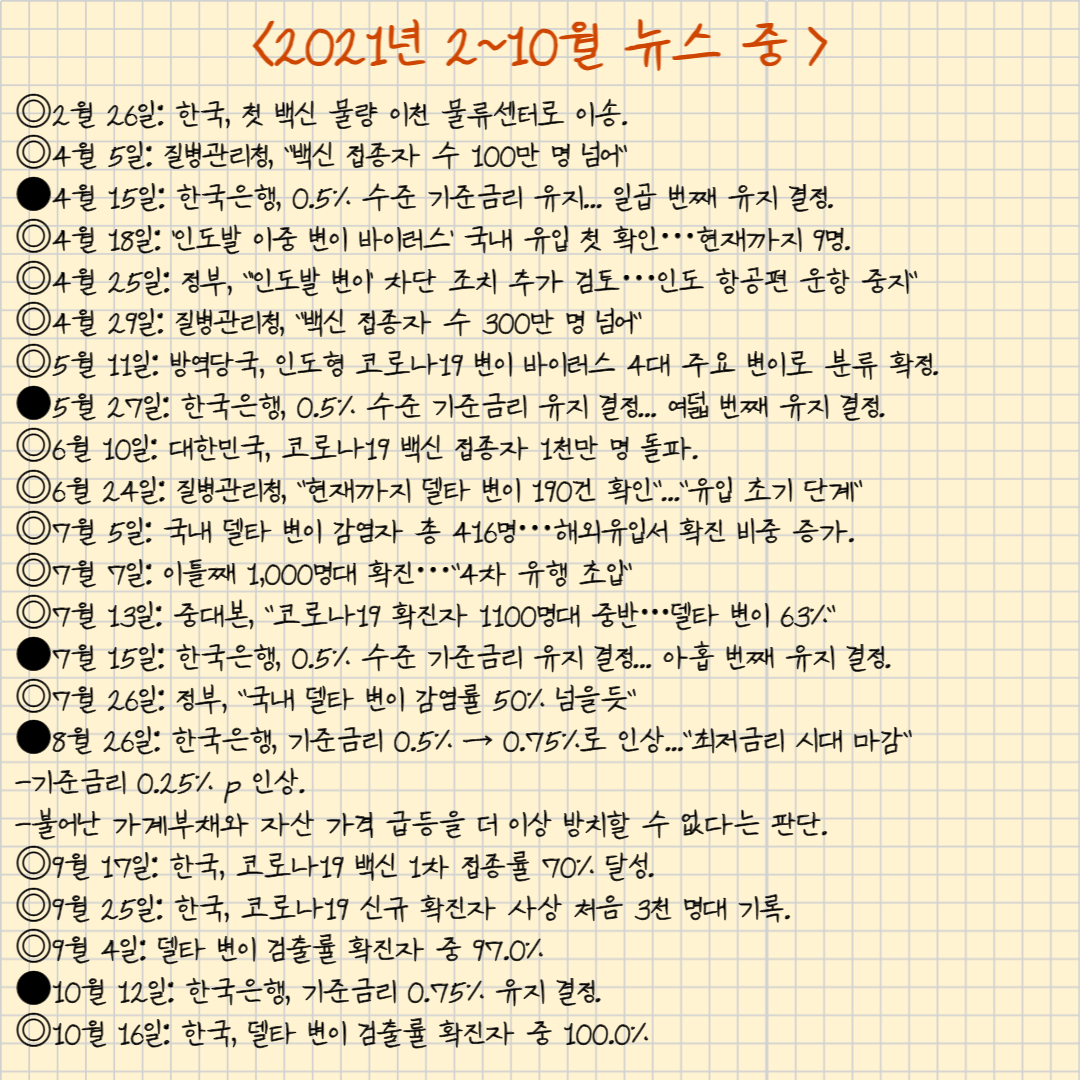 <2021년 2~10월 뉴스 중 >
◎2월 26일: 한국, 첫 백신 물량 이천 물류센터로 이송.
◎4월 5일: 질병관리청, "백신 접종자 수 100만 명 넘어"
●4월 15일: 한국은행, 0.5% 수준 기준금리 유지... 일곱 번째 유지 결정.
◎4월 18일: '인도발 이중 변이 바이러스' 국내 유입 첫 확인…현재까지 9명.
◎4월 25일: 정부, "'인도발 변이' 차단 조치 추가 검토…인도 항공편 운항 중지"
◎4월 29일: 질병관리청, "백신 접종자 수 300만 명 넘어"
◎5월 11일: 방역당국, 인도형 코로나19 변이 바이러스 4대 주요 변이로 분류 확정.
●5월 27일: 한국은행, 0.5% 수준 기준금리 유지 결정... 여덟 번째 유지 결정.
◎6월 10일: 대한민국, 코로나19 백신 접종자 1천만 명 돌파.
◎6월 24일: 질병관리청, "현재까지 델타 변이 190건 확인"..."유입 초기 단계"
◎7월 5일: 국내 델타 변이 감염자 총 416명…해외유입서 확진 비중 증가.
◎7월 7일: 이틀째 1,000명대 확진…"4차 유행 초입"
◎7월 13일: 중대본, "코로나19 확진자 1100명대 중반…델타 변이 63%"
●7월 15일: 한국은행, 0.5% 수준 기준금리 유지 결정... 아홉 번째 유지 결정.
◎7월 26일: 정부, "국내 델타 변이 감염률 50% 넘을듯"
●8월 26일: 한국은행, 기준금리 0.5% → 0.75%로 인상..."최저금리 시대 마감"
-기준금리 0.25% p 인상.
-불어난 가계부채와 자산 가격 급등을 더 이상 방치할 수 없다는 판단.
◎9월 17일: 한국, 코로나19 백신 1차 접종률 70% 달성.
◎9월 25일: 한국, 코로나19 신규 확진자 사상 처음 3천 명대 기록.
◎9월 4일: 델타 변이 검출률 확진자 중 97.0%
●10월 12일: 한국은행, 기준금리 0.75% 유지 결정.
◎10월 16일: 한국, 델타 변이 검출률 확진자 중 100.0%